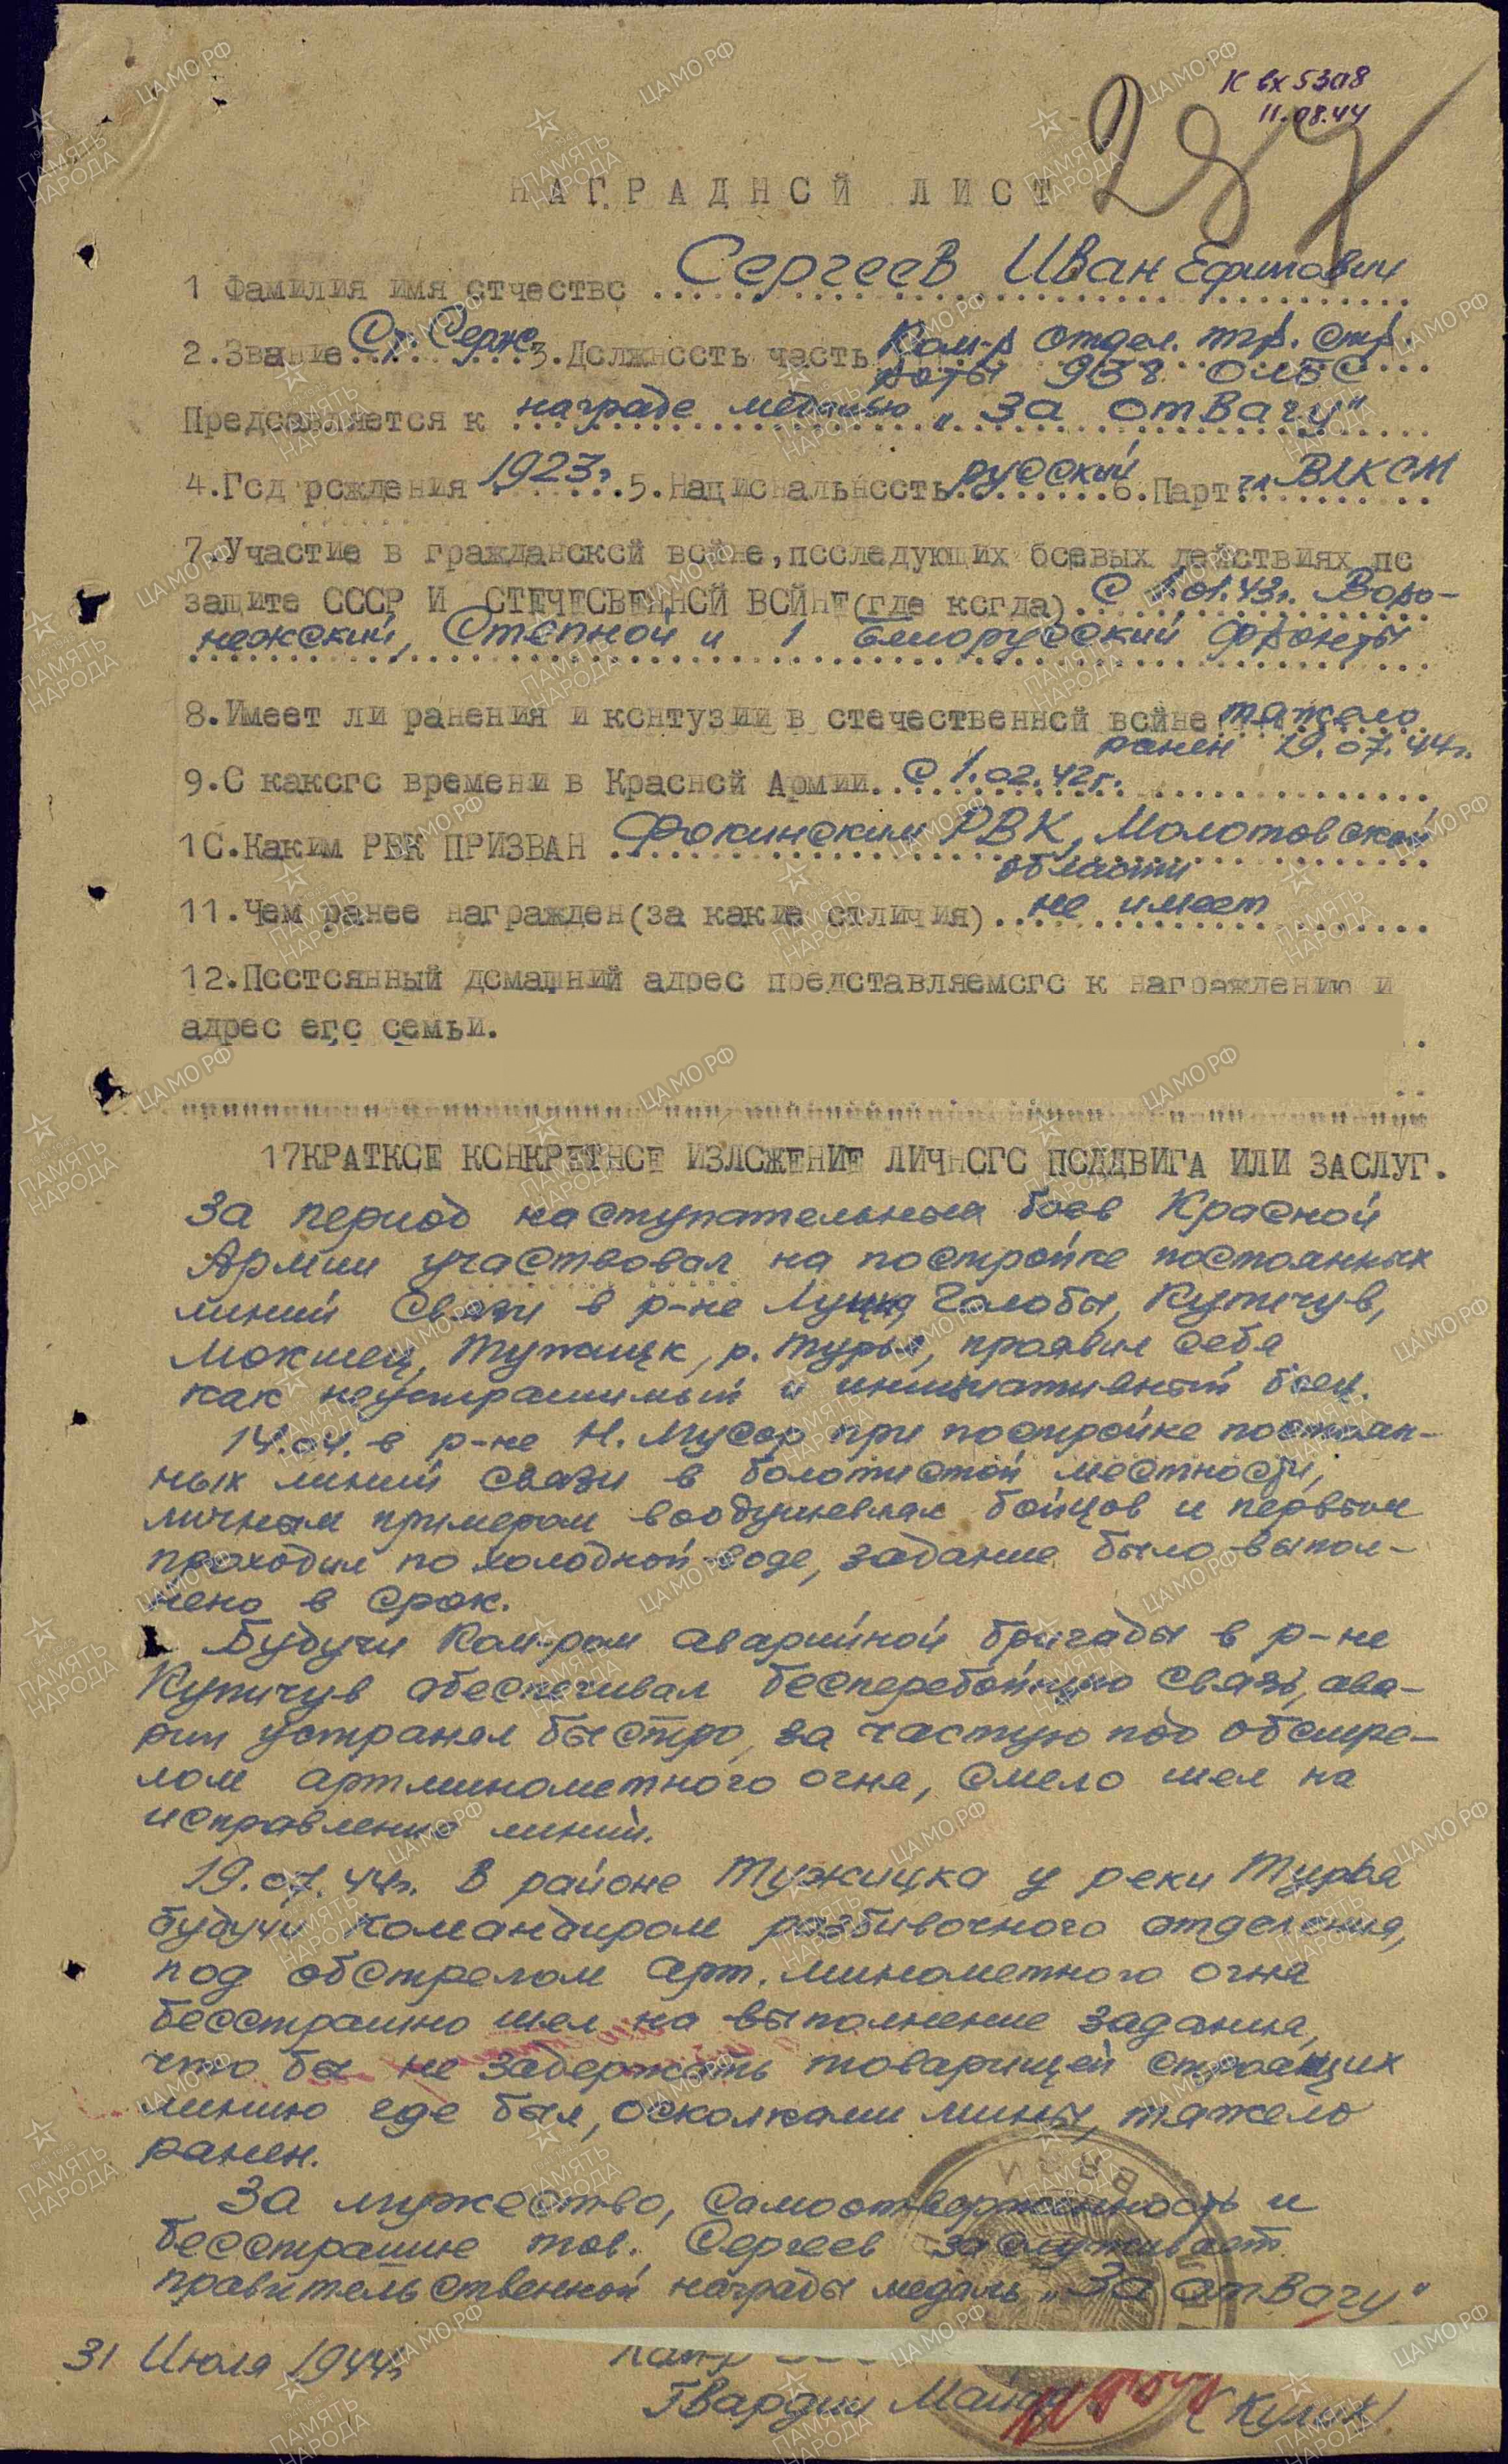 К вх 5308
11.08.44
287
НАГРАДНСЙ ЛИСТ
1 Фамилия имя стчествс Сергеев Иван Ефимович
2.Звание Ст. Серж. 3.Должнссть часть Ком-р отдел. тр. стр.
роты 938 ОЛБС
Предсавляется к награде медалью „За отвагу"
4.Гсд рсждения 1923г. 5.Нациснальнссть русский 6.Парт чл ВЛКСМ
7.Участие в граждансксй всйне,псследующих бсевых действиях пс
защите СССР И СТЕЧЕСВЕННСЙ ВСЙНЕ(где ксгда) С 1.01.43г. Воро-
нежский, Степной и 1 Белорусский фронты
8.Имеет ли ранения и кснтузии в стечественнсй всйне тяжело
ранен 19.07.44г.
9.С каксгс времени в Краснсй Армии. С 1.02.42г.
1С.Каким РВК ПРИЗВАН Фокинским РВК, Молотовской
области
11.Чем ранее награжден(за какие стличия) не имеет
12.Псстсянный дсмашний адрес представляемсгс к награждению и
адрес егс семьи.
17КРАТКСЕ КСНКРЕТНСЕ ИЗЛСЖЕНИЕ ЛИЧНСГС ПСДДВИГА ИЛИ ЗАСЛУГ.
За период наступательных боев Красной
Армии участвовал на постройке постоянных
линий связи в р-не Луцка, Голобы, Купичув,
Мокшец, Тужищк, р. Турья, проявил себя
как неустрашимый и инициативный боец.
14.04. в р-не Н. Мусор при постройке постоян-
ных линий связи в болотистой местности,
личным примером воодушевлял бойцов и первым
проходил по холодной воде, задание было выпол-
нено в срок.
Будучи Ком-ром аварийной бригады в р-не
Купичув обеспечивал бесперебойную связь, ава-
рии устранял быстро, за частую под обстре-
лом артминометного огня, смело шел на
исправление линий.
19.07.44г. В районе Тужицка у реки Турья
будучи командиром разбивочного отделения,
под обстрелом арт. минометного огня
бесстрашно шел на выполнение задания,
что бы не задержать товарищей строящих
линию где был, осколками мины, тяжело
ранен.
За мужество, самоотверженность и
бесстрашие тов. Сергеев заслуживает
правительственной награды медаль „За отвагу"
31 Июля 1944г.
Гвардии Майор (Кулик)
ПАМЯТЬ НАРОДА
ЦАМО.РФ